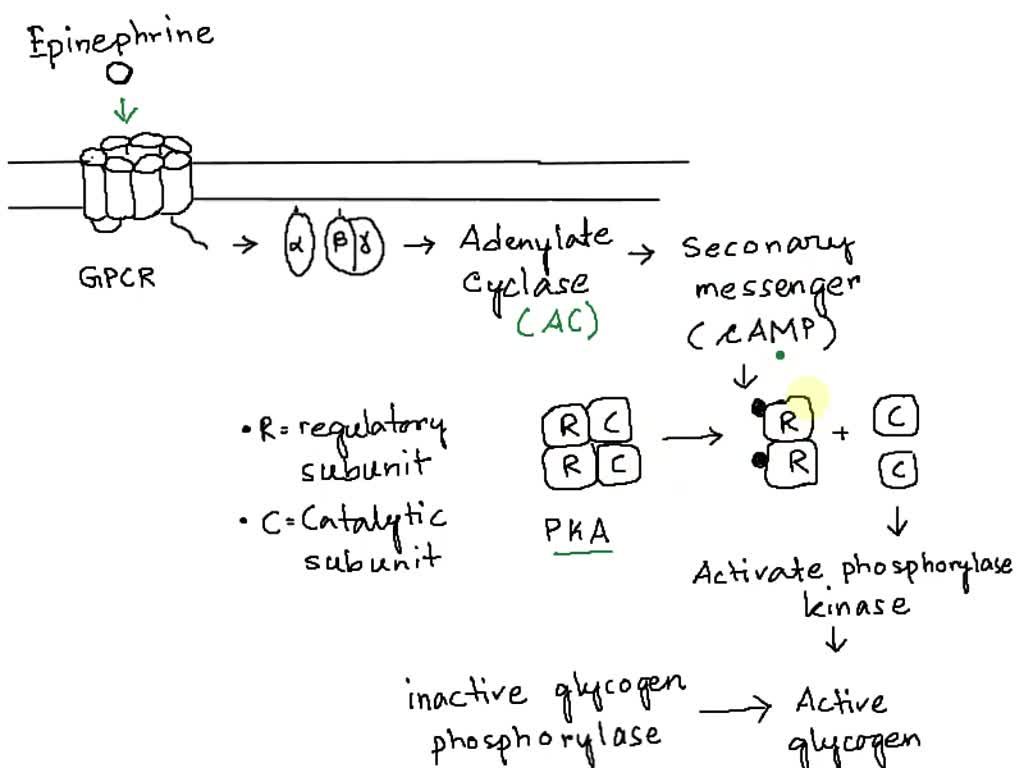 Epinephrine
GPCR
α β γ
Adenylate
Cyclase
(AC)
Seconary
messenger
(cAMP)
• R = regulatory
subunit
• C = Catalytic
subunit
R C
R C
PKA
R + C
R C
Activate phosphorylase
kinase
inactive glycogen
phosphorylase
Active
glycogen